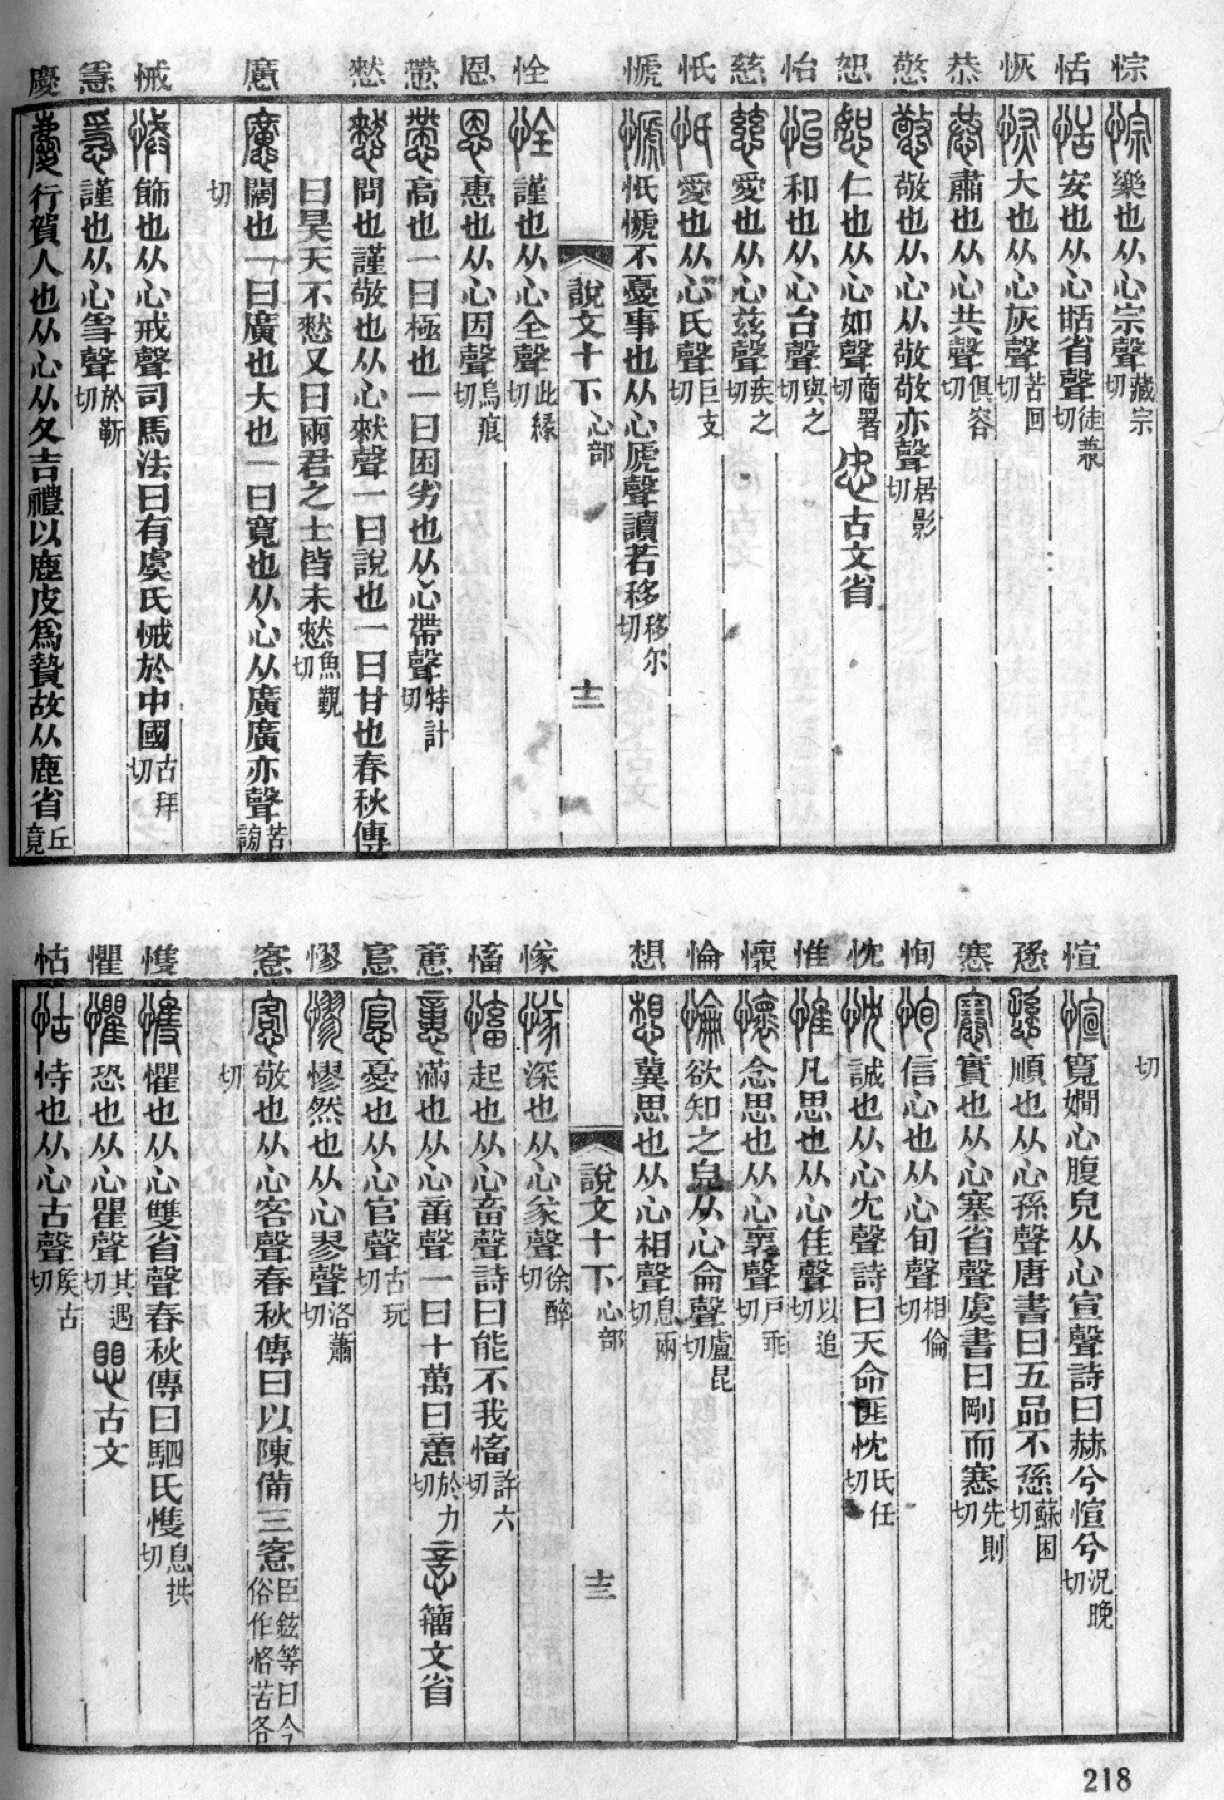 悰恬恢恭憼恕怡慈忯㦒恮恩慸憖懬悈㥼慶
悰樂也从心宗聲藏宗切
恬安也从心甛省聲徒兼切
恢大也从心灰聲苦回切
恭肅也从心共聲俱容切
憼敬也从心从敬敬亦聲居影切
恕仁也从心如聲商署切㣽古文省
怡和也从心台聲與之切
慈愛也从心兹聲疾之切
忯愛也从心氏聲巨支切
㦒忯㦒不憂事也从心虒聲讀若移移尔切
說文十下 心部 十二
恮謹也从心全聲此緣切
恩惠也从心因聲烏痕切
慸高也一曰極也一曰困劣也从心帶聲特計切
憖問也謹敬也从心猌聲一曰說也一曰甘也春秋傳
曰昊天不憖又曰兩君之士皆未憖魚覲切
懬闊也一曰廣也大也一曰寬也从心从廣廣亦聲苦謗
切
悈飾也从心戒聲司馬法曰有虞氏悈於中國古拜切
㥼謹也从心㥯聲於靳切
慶行賀人也从心从夊吉禮以鹿皮爲贄故从鹿省丘竟
愃愻𡫳恂忱惟懷惀想㥞慉𢡃悹憀愙愯懼怙
切
愃寬嫺心腹皃从心宣聲詩曰赫兮愃兮況晚切
愻順也从心孫聲唐書曰五品不愻蘇困切
𡫳實也从心塞省聲虞書曰剛而𡫳先則切
恂信心也从心旬聲相倫切
忱誠也从心冘聲詩曰天命匪忱氏任切
惟凡思也从心隹聲以追切
懷念思也从心褱聲戸乖切
惀欲知之皃从心侖聲盧昆切
想冀思也从心相聲息兩切
說文十下 心部 十三
㥞深也从心㒸聲徐醉切
慉起也从心畜聲詩曰能不我慉許六切
𢡃滿也从心𡔷聲一曰十萬曰𢡃於力切𢞽籒文省
悹憂也从心官聲古玩切
憀憀然也从心翏聲洛蕭切
愙敬也从心客聲春秋傳曰以陳備三愙臣鉉等曰今俗作恪苦各
切
愯懼也从心雙省聲春秋傳曰駟氏愯息拱切
懼恐也从心瞿聲其遇切愳古文
怙恃也从心古聲矦古切
218